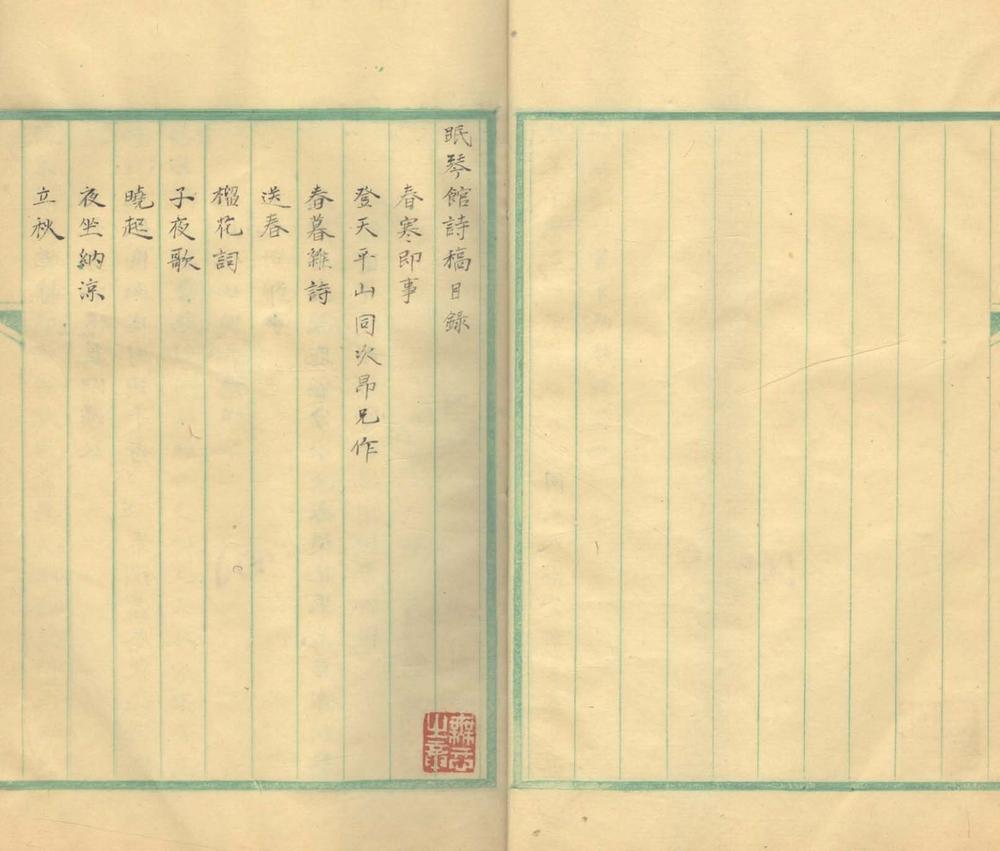 眠琴館詩稿目錄
春寒即事
登天平山同次昂兄作
春暮雜詩
送春
榴花詞
子夜歌
曉起
夜坐納涼
立秋